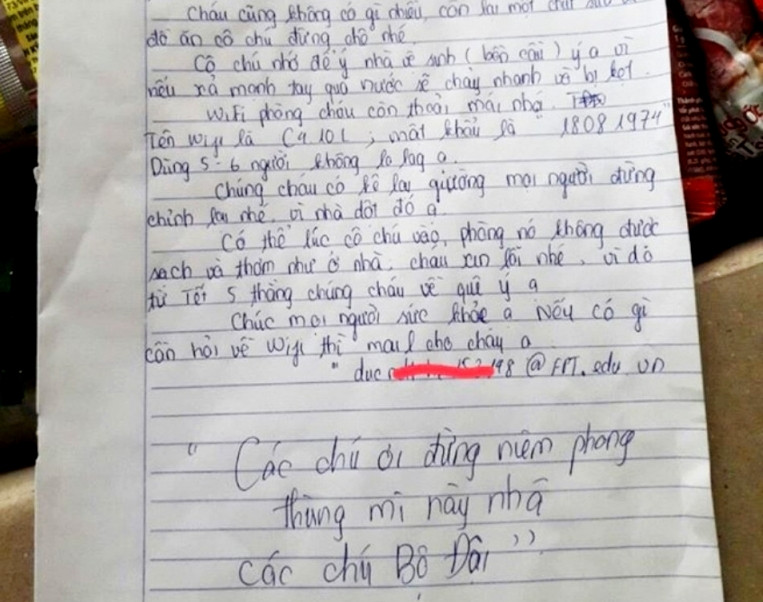 Cháu cũng không có gì nhiều, còn lại một chút
đồ ăn cô chú dừng chê nhé
Cô chú nhớ để ý nhà vệ sinh (bồn cầu) ý ạ vì
nếu xả mạnh tay quá nước sẽ chảy nhanh và bị kẹt.
Wifi phòng cháu còn thoải mái nhá.
Tên wifi là C9 101, mật khẩu là "18081974"
Dùng 5-6 người không lo lag ạ.
Chúng cháu có kê lại giường mọi người đừng
chỉnh lại nhé, vì nhà dột đó ạ.
Có thể lúc cô chú vào, phòng nó không được
sạch và thơm như ở nhà, cháu xin lỗi nhé, vì đó
từ Tết 5 tháng chúng cháu về quê ý ạ
Chúc mọi người sức khỏe ạ Nếu có gì
cần hỏi về wifi thì mail cho cháu ạ
"duc 198@FPT.edu.vn
"Các chú ơi đừng niêm phong
thùng mì này nhá
các chú Bộ Đội"